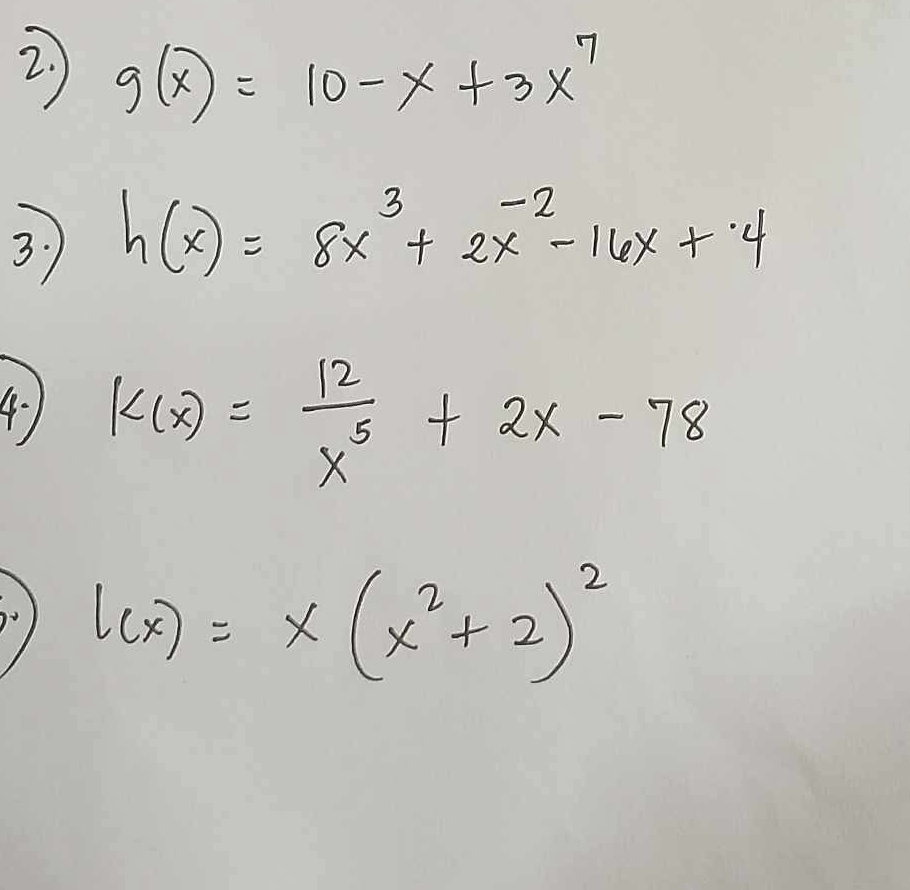 2.) g(x) = 10 - x + 3x^7
3.) h(x) = 8x^3 + 2x^-2 - 16x + 4
4.) k(x) = 12/x^5 + 2x - 78
) l(x) = x(x^2 + 2)^2